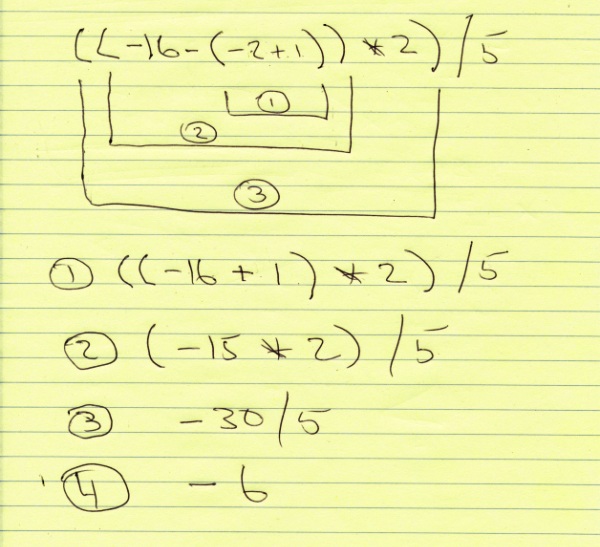 ((-16-(-2+1))*2)/5
①
②
③
① ((-16+1)*2)/5
② (-15*2)/5
③ -30/5
④ -6